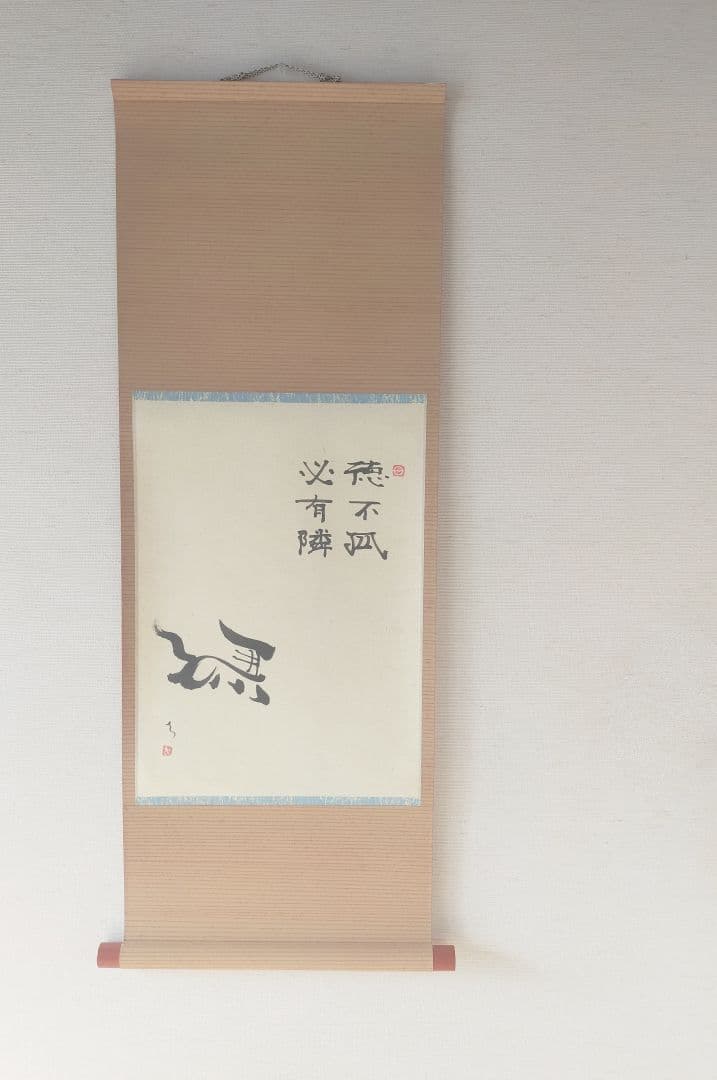 徳不孤
必有隣